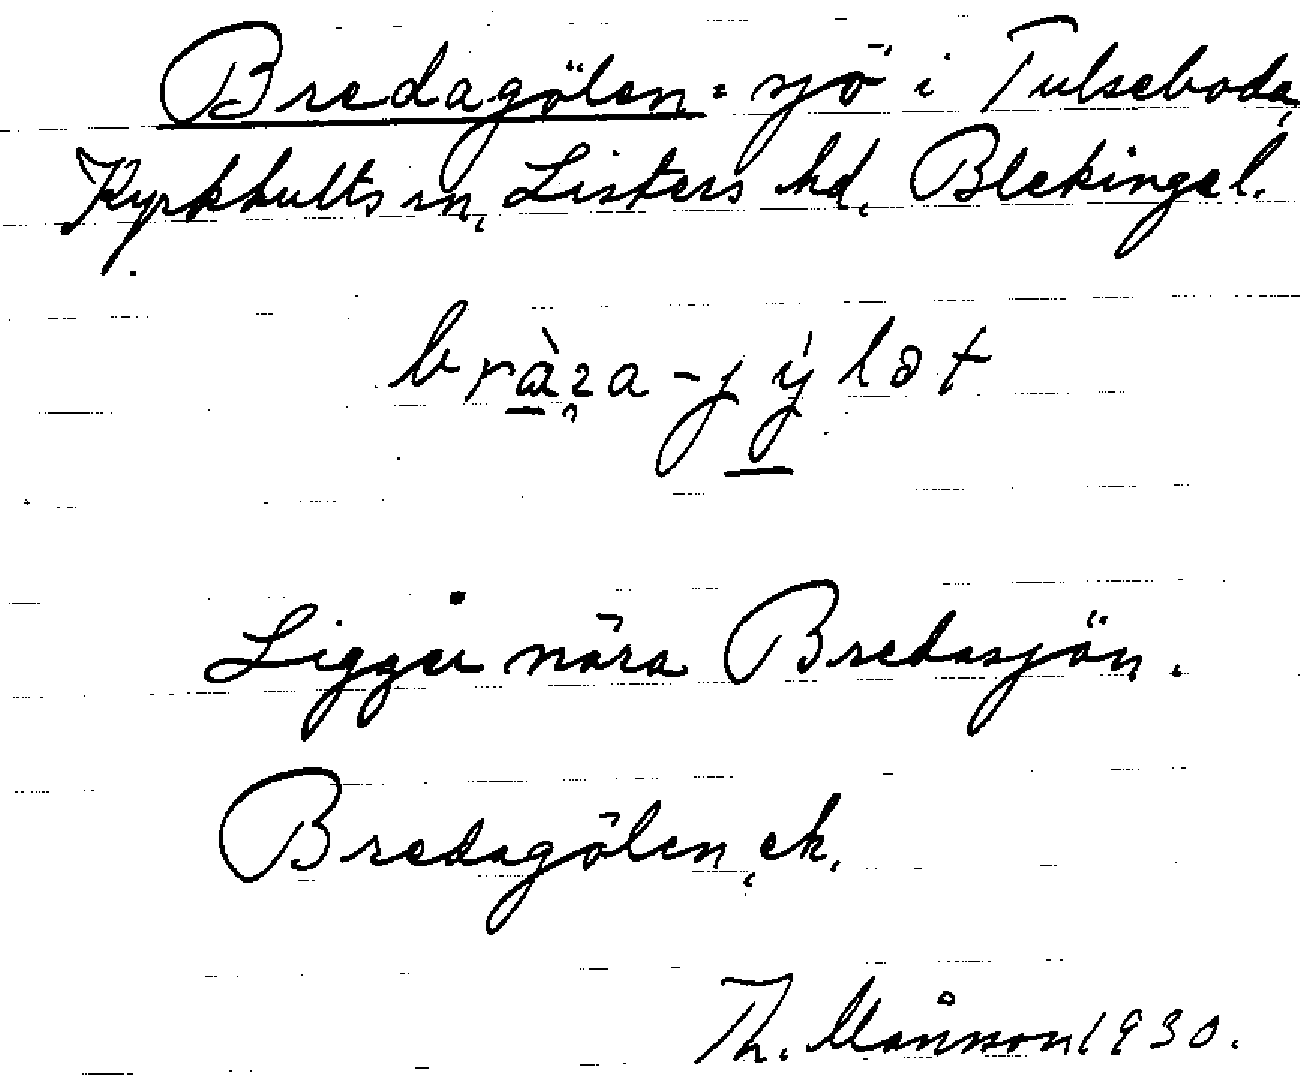 Bredagölen = sjö i Tulseboda,
Kyrkhults sn, Listers hd, Blekinge l.
Ligger nära Bredasjön.
Bredagölen, ek.
Th. Månsson 1930.